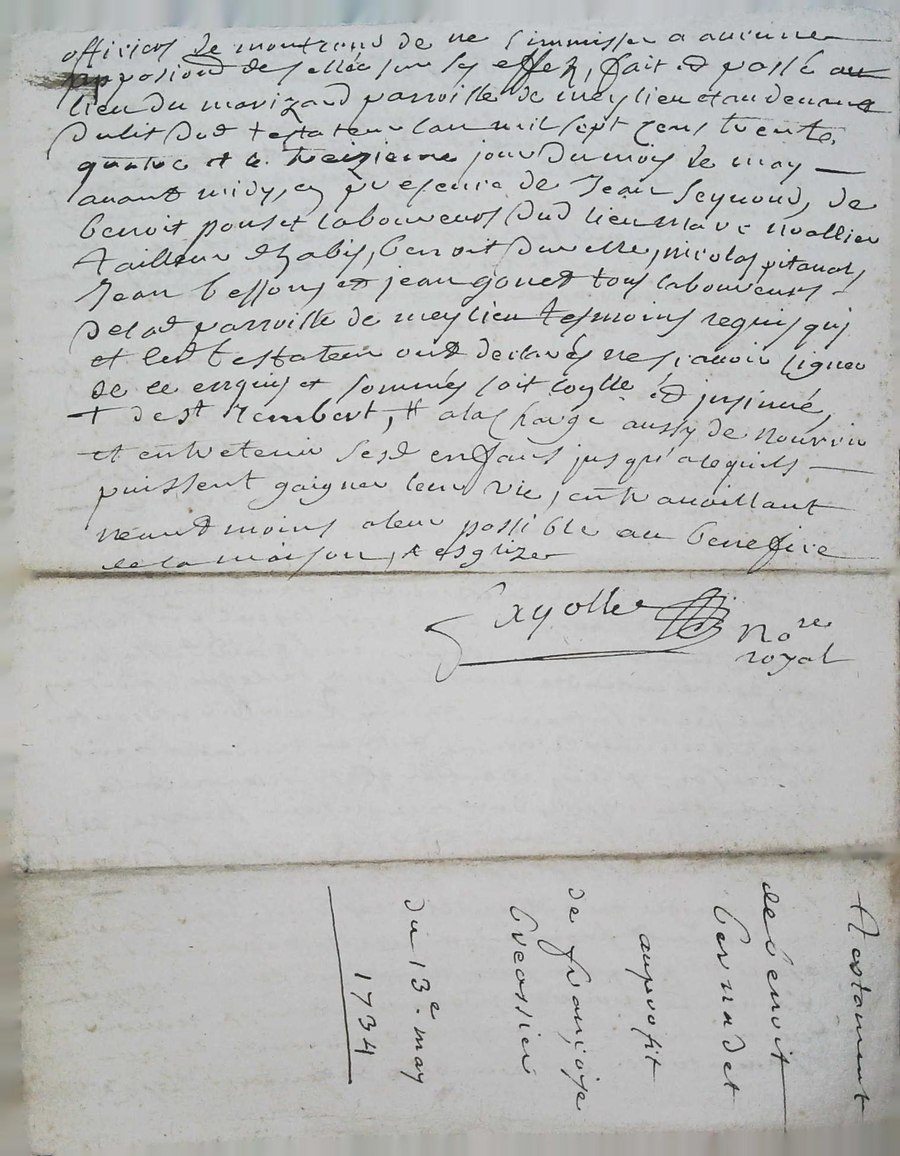 officiers de montrond de ne s'immisser a aucunne
apposiond de sellés sur ses effetz, fait et passé au
lieu du marizard parroisse de meylieu et au
dulit dud testateur l'an mil sept cens trente
quatre et le treizieme jour du mois de may
avant midy, en presence de Jean Seynoud, de
benoit ponset laboureurs dud lieu marc
tailleur d'habis, benoit, nicolas pitaval,
Jean bessons et jean gonet tous laboureurs
de lad parroisse de meylieu tesmoins requis qui
et led testateur ond declarés ne scavoir signer
de ce enquis et sommés soit et jnsinué,
+ de st rembert, # a la charge aussy de nourrir
et entretenir sesd enffans jusqu'a cequils
puissent gaigner leur vie, en travaillant
neantmoins a leur possible au benefice
de la maison,
nore
royal
Testament
de benoit
bernadet
au profit
de françoise
brossier
du 13e may
1734